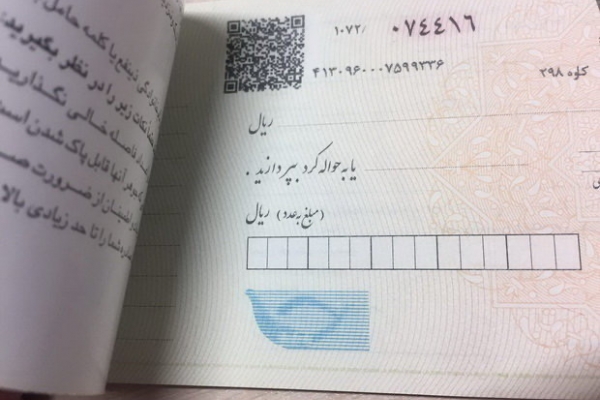 ۱۰۷۲/ ۰۷۴۴۱۶
کاوه ۲۹۸ ۴۱۳۰۹۶۰۰۰۷۵۹۹۳۳۶
ریال
یا به حواله کرد بپردازید .
(مبلغ به عدد) ریال
ذینفع یا کلمه حامل
نکات زیر را در نظر بگیرید:
فاصله خالی نگذارید
آنها قابل پاک شدن است
از ضرورت
شما را تا حد زیادی بالا